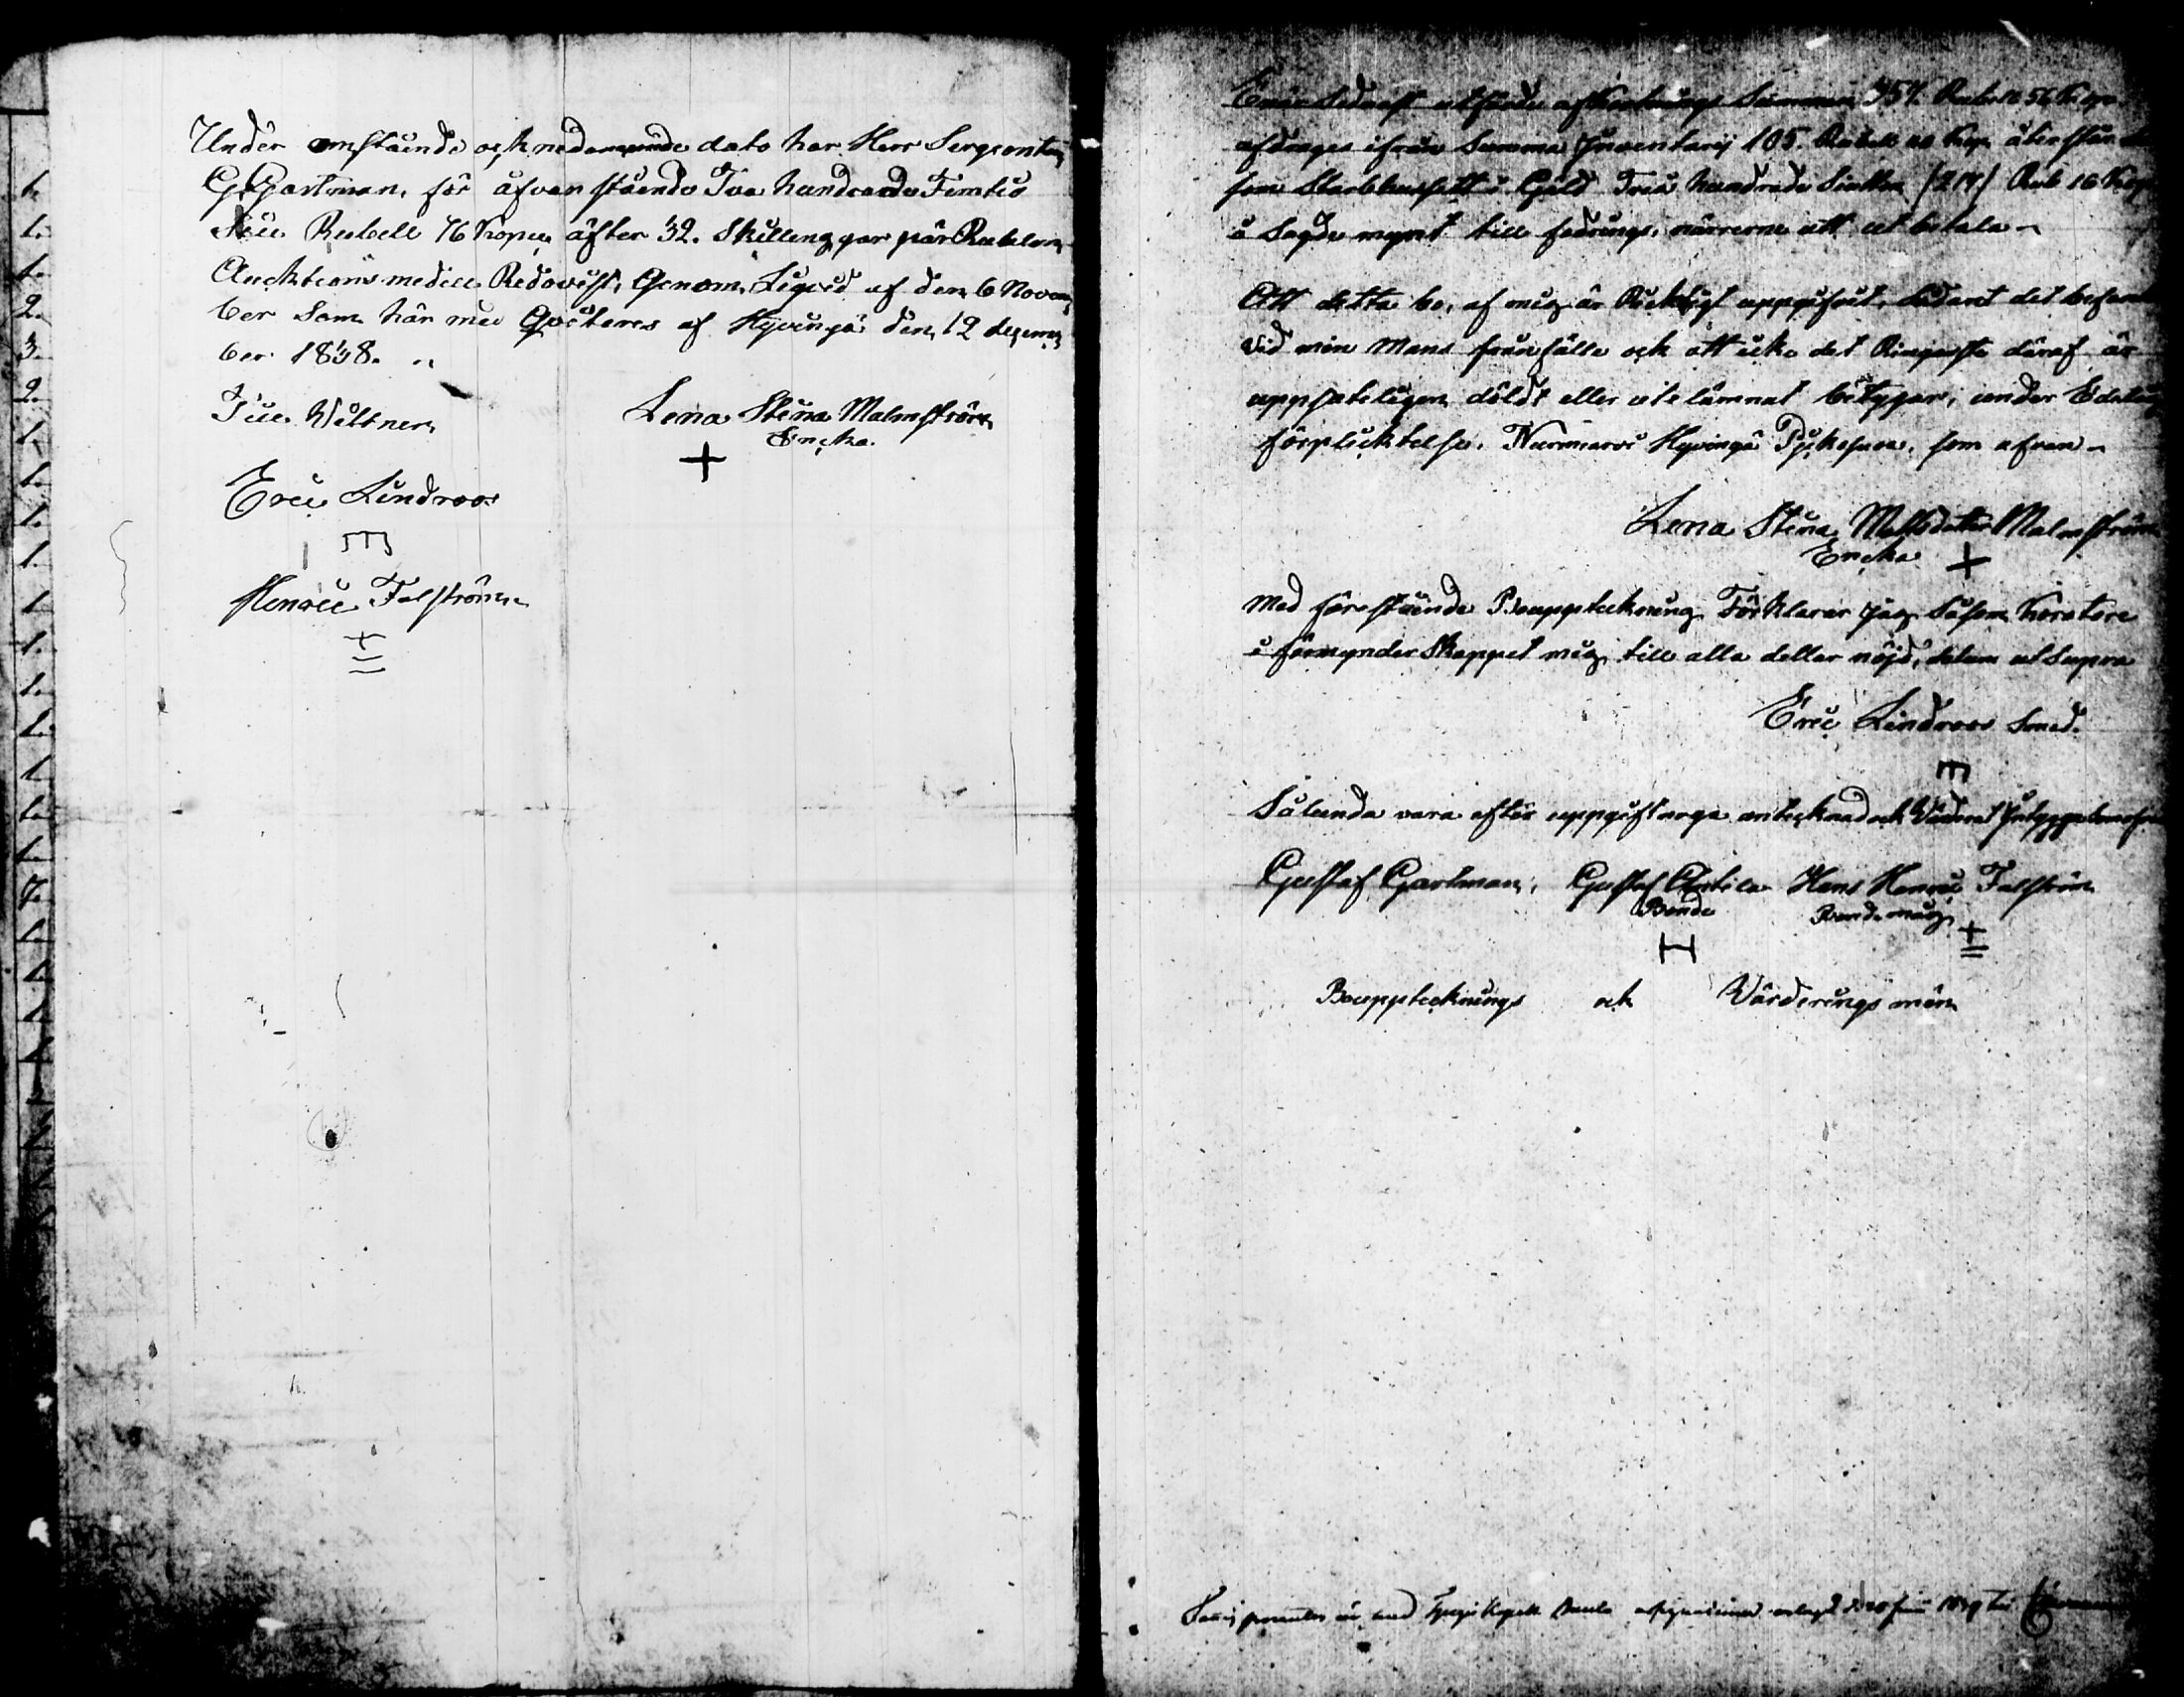 Under omstående ock nedannemde dato har Herr Sergeonten
G Gartman, för åfvan stående Tva hundrade Femtio
Rubell 76 Kopeu äfter 32. Skillinggar pär Rubelen
Aucktions medell Redovist, Genom Liqvid af den 6 Novem
ber Som här med Qviteres af Hyvingä den 12 dezem
ber 1838.
Till Vittner
Lena Stina Malmström
Encka
Eric Lindroos
Henric Falström
afdrages ifrån Summa Inventarij 105. Rubell 40 Kop. återstår
som Starbhussett i Gäld Tvåhundrade (214) Rub 16 Kop
i Sagde mynt till fodrings, närrerne att ut betala
Att detta bo, af mig är Ricktigt uppgifvit, Sådant det befants
vid min Mans frånfälle ock att icke det Ringaste däraf är
uppsåteligen döldt eller utelämnat betygar, under Edelig
förplicktelse. Nurmiarvi Hyvingä Pykesuo, som afvan
Lena Stina Matsdotter Malmström
Encka
Med förestående Bouppteckning Förklarar jag Såsom Koratore
i förmynder Skappet mig till alla dellar nöjd, datum ut Supra
Eric Lindroos Smed.
Sålunda vara efter uppgift noga antecknad ock Värderat Intyga
Gustaf Gartman, Gustaf Antila Hans Henric Falström
Bonde
Bonde måg
Bouppteknings ock Värderings män